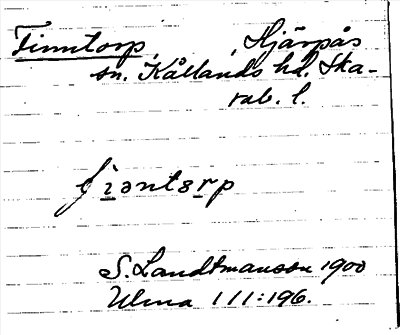 Finntorp, , Hjärpås
sn. Kållands hd. Ska-
rab. l.
fìəntərp
S. Landtmanson 1900
Ulma 111:196.